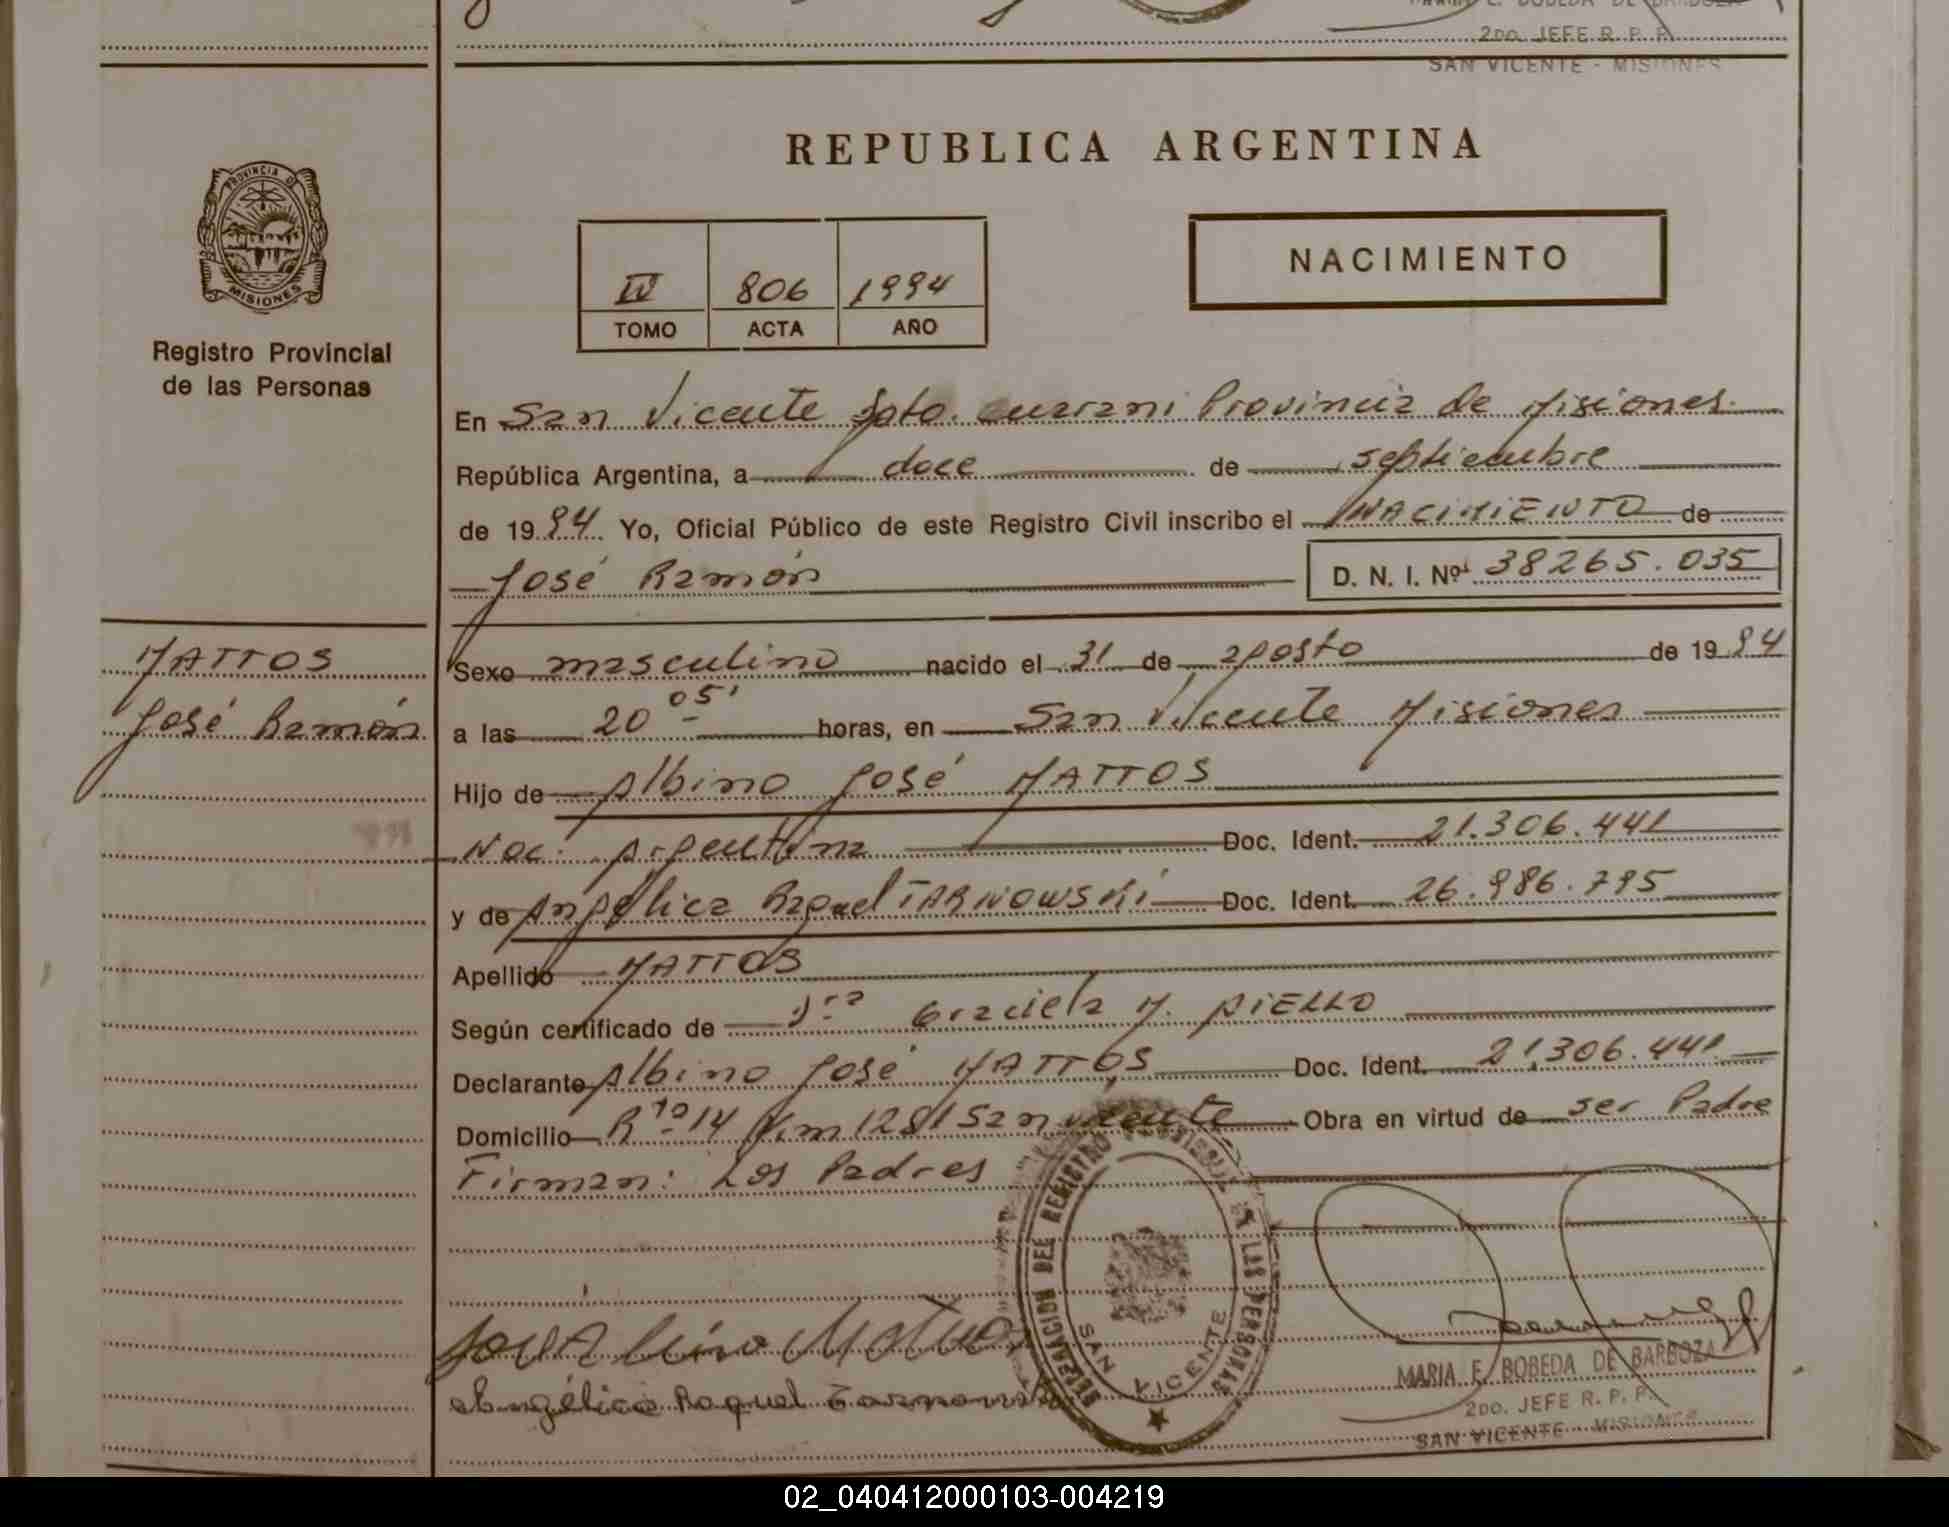 MARIA E. BOBEDA DE BARBOZA
2DO. JEFE R. P. P.
SAN VICENTE - MISIONES
REPUBLICA ARGENTINA
PROVINCIA DE
MISIONES
Registro Provincial
de las Personas
IV 806 1994
TOMO ACTA AÑO
NACIMIENTO
En San Vicente Dpto. Guarani Provincia de Misiones
República Argentina, a doce de septiembre
de 1994 Yo, Oficial Público de este Registro Civil inscribo el NACIMIENTO de
José Ramón D. N. I. Nº 38265.035
MATTOS
José Ramón
Sexo masculino nacido el 31 de agosto de 1994
a las 20 05' horas, en San Vicente Misiones
Hijo de Albino José MATTOS
Nac. Argentina Doc. Ident. 21.306.441
y de Angélica Raquel TARNOWSKI Doc. Ident. 26.986.795
Apellido MATTOS
Según certificado de Dra Graciela M. AIELLO
Declarante Albino José MATTOS Doc. Ident. 21.306.441
Domicilio Rta 14 Km 1281 San Vicente Obra en virtud de ser Padre
Firman: Los Padres
DEL REGISTRO PROVINCIAL DE LAS PERSONAS
SAN VICENTE
Angélica Raquel Tarnowski
MARIA E. BOBEDA DE BARBOZA
2DO. JEFE R. P. P.
SAN VICENTE - MISIONES
02_040412000103-004219